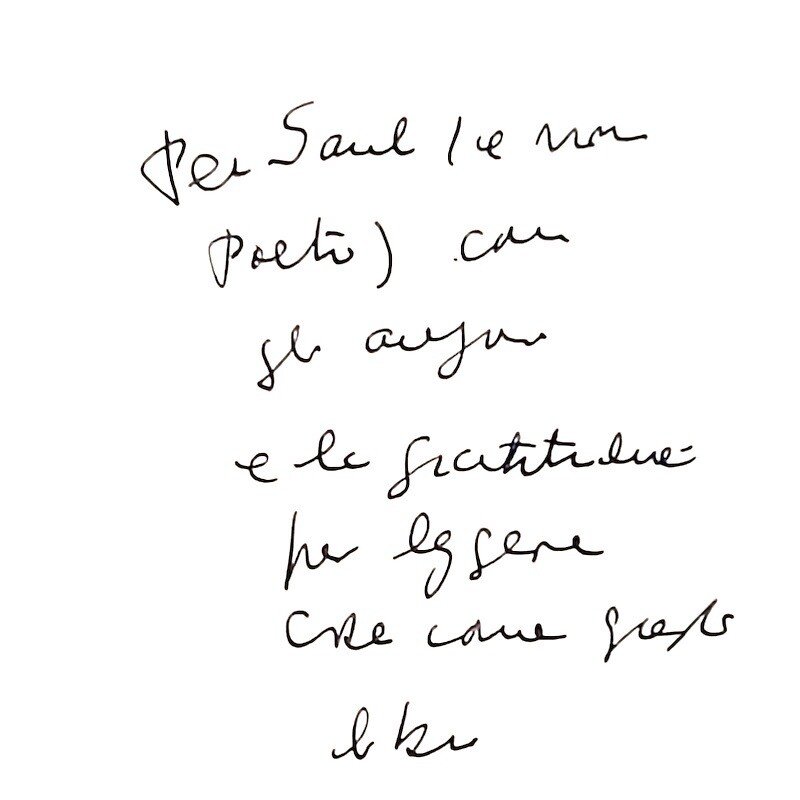 Per Saul (e non
Poeta) con
gli auguri
e la gratitudine
per leggere
cose come questo
libro